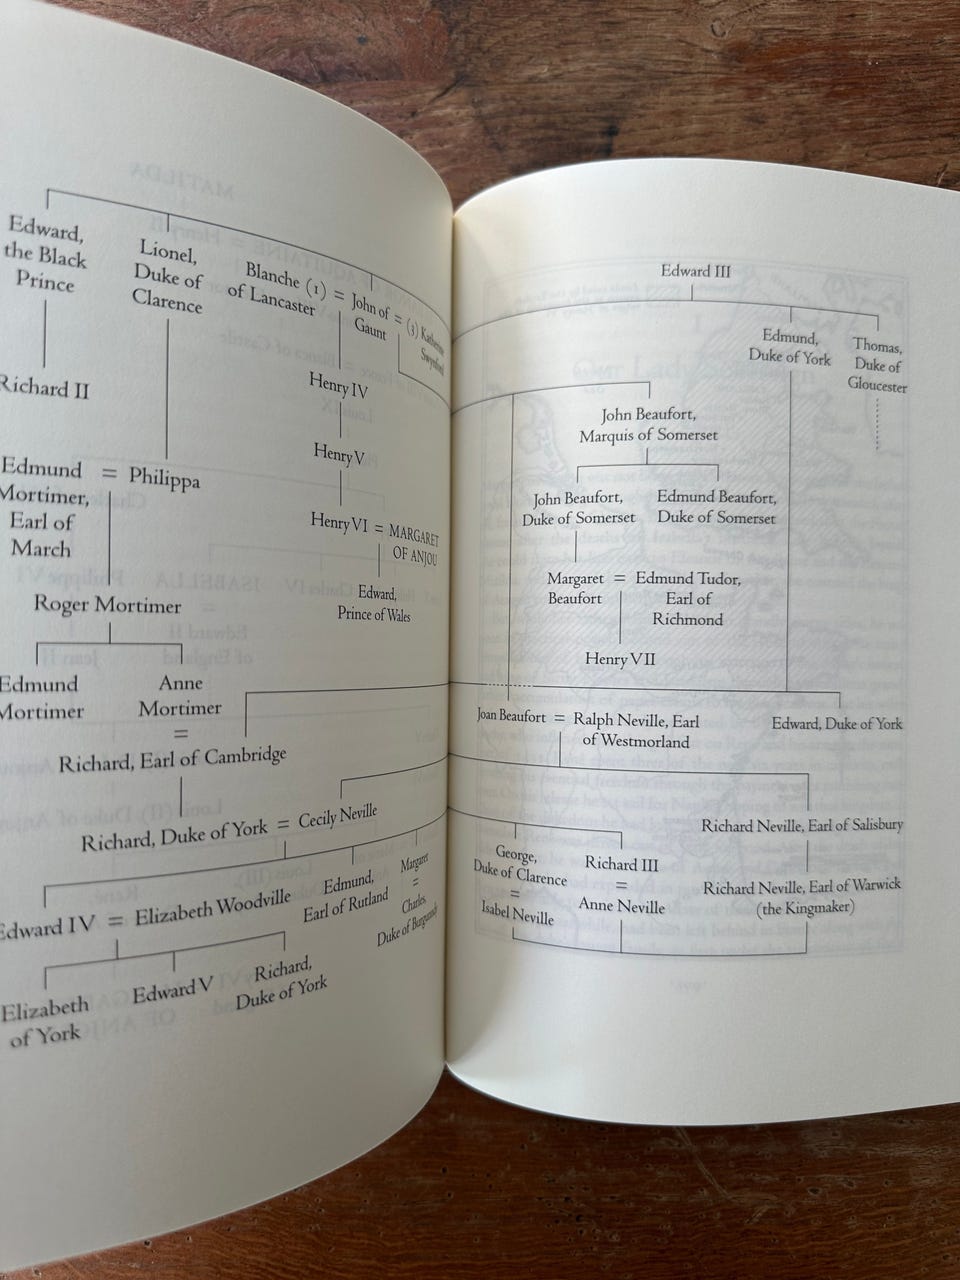 Edward,
the Black
Prince
Lionel,
Duke of
Clarence
Blanche (1) = John of = (3) Katherine
of Lancaster
Gaunt
Swynford
Richard II
Henry IV
Henry V
Edmund = Philippa
Mortimer,
Earl of
March
Henry VI = MARGARET
OF ANJOU
Edward,
Prince of Wales
Roger Mortimer
Edmund
Mortimer
Anne
Mortimer
=
Richard, Earl of Cambridge
Richard, Duke of York = Cecily Neville
Edward IV = Elizabeth Woodville
Edmund,
Earl of Rutland
Margaret
=
Charles,
Duke of Burgundy
Elizabeth
of York
Edward V
Richard,
Duke of York
Edward III
Edmund,
Duke of York
Thomas,
Duke of
Gloucester
John Beaufort,
Marquis of Somerset
John Beaufort,
Duke of Somerset
Edmund Beaufort,
Duke of Somerset
Margaret = Edmund Tudor,
Beaufort
Earl of
Richmond
Henry VII
Joan Beaufort = Ralph Neville, Earl
of Westmorland
Edward, Duke of York
Richard Neville, Earl of Salisbury
George,
Duke of Clarence
=
Isabel Neville
Richard III
=
Anne Neville
Richard Neville, Earl of Warwick
(the Kingmaker)